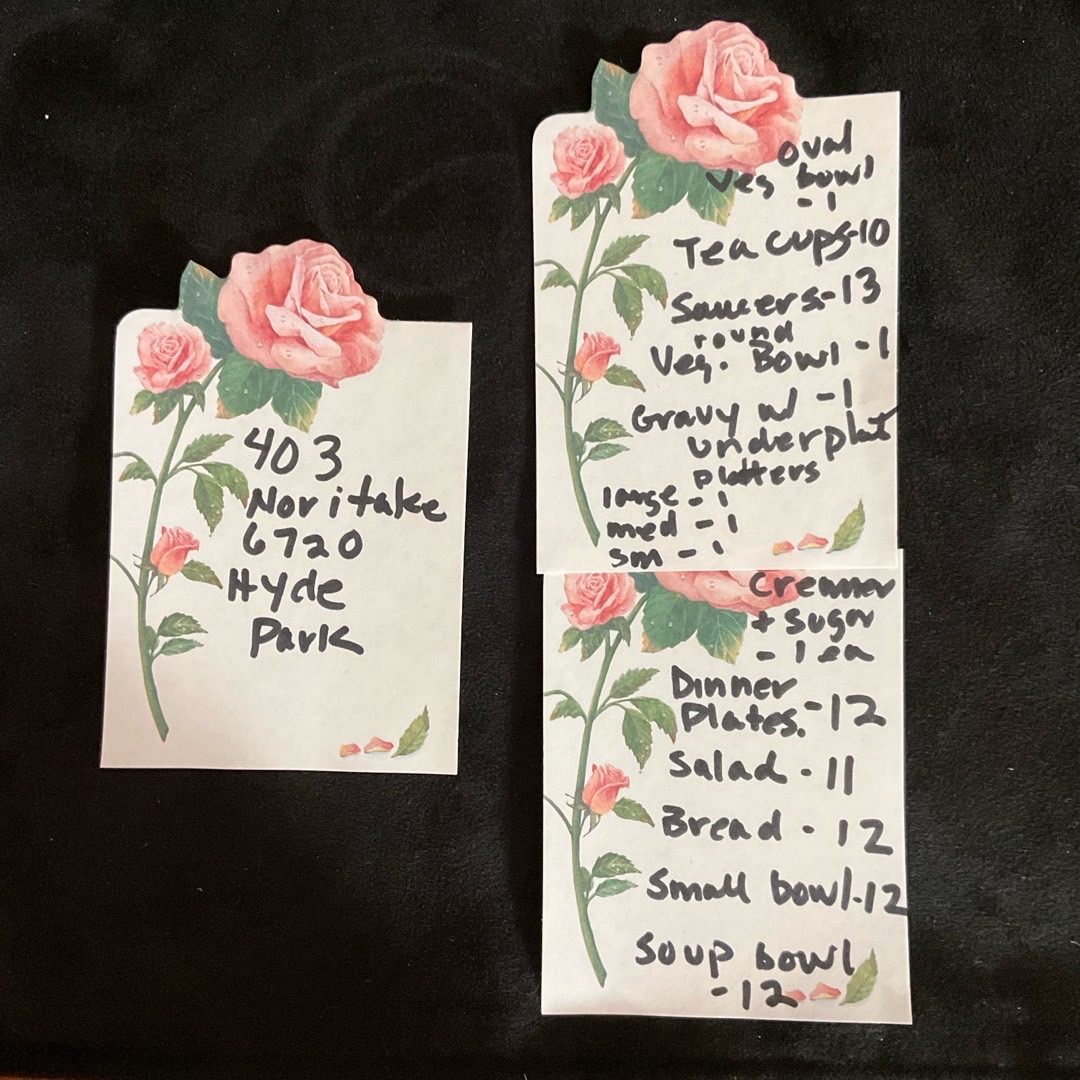 403
Noritake
6720
Hyde
Park
oval
veg bowl
- 1
Tea cups-10
Saucers-13
round
Veg. Bowl -1
Gravy w/ -1
underplat
platters
large - 1
med - 1
sm - 1
Creamer
+ sugar
- 1 ea
Dinner
Plates.-12
Salad - 11
Bread - 12
Small bowl-12
Soup bowl
-12